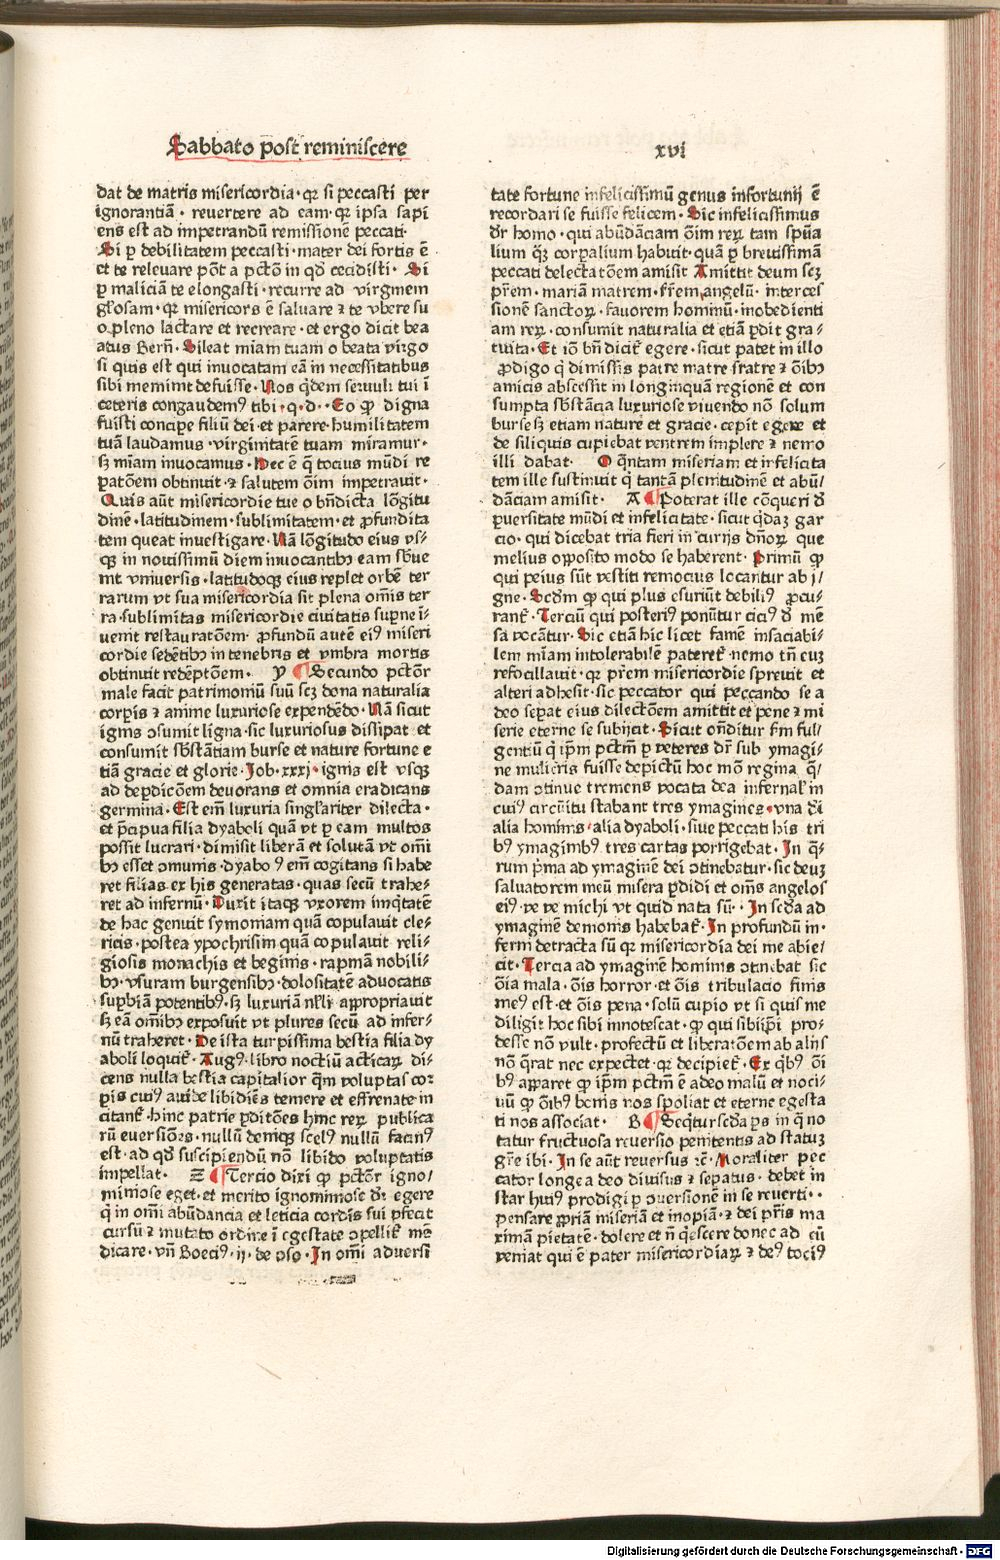 Sabbato post reminiscere
xvi
dat de matris misericordia· qꝛ si peccasti per
ignorantiā· reuertere ad eam· qꝛ ipsa sapi
ens est ad impetrandū remissionē peccati·
Si ꝑ debilitatem peccasti· mater dei fortis ē
et te releuare pōt a pctō in qd̄ cecidisti· Si
ꝑ maliciā te elongasti· recurre ad virginem
gl'osam· qꝛ misericors ē saluare ⁊ te vbere su
o pleno lactare et recreare· et ergo dicit bea
atus Bern̄· Sileat miam tuam o beata virgo
si quis est qui inuocatam eā in necessitatibus
sibi meminit defuisse· Nos q̄dem seruuli tui ī
ceteris congaudemꝰ tibi· q· d· Eo ꝙ digna
fuisti concipe filiū dei· et parere· humilitatem
tuā laudamus· virginitatē tuam miramur·
sꝫ miam inuocamus· Hec ē q̄ tocius mūdi re
patōem obtinuit· ⁊ salutem oīm impetrauit·
Quis aūt misericordie tue o bn̄dicta lōgitu
dinē· latitudinem· sublimitatem· et ꝓfundita
tem queat inuestigare· Nā lōgitudo eius vs⸗
qꝫ in nouissimū diem inuocantibꝫ eam sb̄ue
nit vniuersis· latitudoqꝫ eius replet orbē ter
rarum vt sua misericordia sit plena om̄is ter
ra· sublimitas misericordie ciuitatis suꝑne ī⸗
uenit restauratōem· ꝓfundū autē eiꝰ miseri
cordie sedētibꝫ in tenebris et vmbra mortis
obtinuit redēptōem· Y ¶ Secundo pctōr
male facit patrimoniū suū scꝫ dona naturalia
corꝑis ⁊ anime luxuriose expendēdo· Nā sicut
ignis ↄsumit ligna· sic luxuriosus dissipat et
consumit sb̄stātiam burse et nature fortune e
tiā gracie et glorie· Job· xxxj· ignis est vsqꝫ
ad ꝑdicōem deuorans et omnia eradicans
germina· Est em̄ luxuria singl'ariter dilecta·
et p̄cipua filia dyaboli quā vt ꝑ eam multos
possit lucrari· dimisit liberā et solutā vt om̄i
bꝫ esset ↄmunis· dyabo ꝰ em̄ cogitans si habe
ret filias ex his generatas· quas secū trahe⸗
ret ad infernū· Duxit itaqꝫ vxorem iniq̄tatē
de hac genuit symoniam quā copulauit cle⸗
ricis· postea ypochrisim quā copulauit reli⸗
giosis monachis et beginis· rapinā nobili⸗
bꝫ· vsuram burgensibꝫ· dolositatē aduocatis
suꝑbiā potentibꝰ· sꝫ luxuriā nl'li appropriauit
sꝫ eā om̄ibꝫ exposuit vt plures secū ad infer⸗
nū traheret· De ista turpissima bestia filia dy
aboli loquit̄· Augꝰ· libro noctiū acticaꝝ di⸗
cens nulla bestia capitalior q̄m voluptas coꝛ
ꝑis cuiꝰ auide libidiēs temere et effrenate in
citant̄· hinc patrie ꝓditōes hinc reꝝ publica
rū euersiōꝛs· nullū deniqꝫ scelꝰ nullū facinꝰ
est· ad qd̄ suscipiendū nō libido voluptatis
impellat· Z ¶ Tercio dixi ꝙ pctōr igno⸗
miniose eget· et merito ignominiose dꝛ egere
q̄ in om̄i abūdancia et leticia cordis sui pfecit
cursū ⁊ mutato ordine ī egestate ↄpellit̄ mē
dicare· vn̄ Boeciꝰ· ij· de ↄso· In om̄i aduersi
tate fortune infelicissimū genus infortunij ē
recordari se fuisse felicem· Sic infelicissimus
dꝛ homo· qui abūdāciam oīm reꝝ tam spūa
lium qꝫ corꝑalium habuit· quā ꝑ breuissimā
peccati delectatōem amisit Amittit deum scꝫ
pr̄em· mariā matrem· fr̄em angelū· interces
sionē sanctoꝝ· fauorem hominū· inobedienti
am reꝝ· consumit naturalia et etiā ꝑdit gra⸗
tuita· Et iō bn̄ dicit̄ egere· sicut patet in illo
ꝓdigo q̄ dimissis patre matre fratre ⁊ oībꝫ
amicis abscessit in longinquā regionē et con
sumpta sb̄stācia luxuriose viuendo nō solum
burse sꝫ etiam nature et gracie· cepit egere et
de siliquis cupiebat ventrem implere ⁊ nemo
illi dabat· O q̄ntam miseriam et infelicita
tem ille sustinuit q̄ tantā plenitudinē et abū⸗
dāciam amisit· A ¶ Poterat ille cōqueri d̄
ꝑuersitate mūdi et infelicitate· sicut q̄daꝫ gar
cio· qui dicebat tria fieri in curijs dn̄oꝝ que
melius opposito modo se haberent· Primū ꝙ
qui peius sūt vestiti remocius locantur ab j⸗
gne· Scd̄m ꝙ qui plus esuriūt debiliꝰ ꝓcu⸗
rant̄· Terciū qui posteriꝰ ponūtur ciciꝰ d̄ mē
sa vocātur· Sic etiā hic licet famē insaciabi⸗
lem miam intolerabilē pateret̄· nemo tn̄ euꝫ
refocillauit· qꝛ pr̄em misericordie spreuit et
alteri adhesit· sic peccator qui peccando se a
deo seꝑat eius dilectōem amittit et pene ⁊ mi
serie eterne se subijcit· Sicut on̄ditur s̄m ful⸗
gentiū q̄ ip̄m pctm̄ ꝑ veteres dr̄ sub ymagi⸗
ne mulieris fuisse depictū hoc mō regina q̄⸗
dam ↄtinue tremens vocata dea infernal' in
cuiꝰ circūitu stabant tres ymagines· vna d̄i
alia hominis· alia dyaboli· siue peccati his tri
bꝰ ymaginibꝰ tres cartas porrigebat· In q̄⸗
rum p̄ma ad ymaginē dei ↄtinebatur· sic deuꝫ
saluatorem meū misera ꝑdidi et om̄s angelos
eiꝰ· ve ve michi vt quid nata sū·· In scd̄a ad
ymaginē demonis habebat̄· In profundū in·
ferni detracta sū qꝛ misericordia dei me abie⸗
cit· Tercia ad ymaginē hominis ↄtinebat sic
oīa mala· oīs horror· et oīs tribulacio finis
meꝰ est· et oīs pena· solū cupio vt si quis me
diligit hoc sibi innotescat· ꝙ qui sibiip̄i pro⸗
desse nō vult· profectū et liberatōem ab alijs
nō q̄rat nec expectet· qꝛ decipiet̄· Ex q̄bꝰ oī
bꝰ apparet ꝙ ip̄m pctm̄ ē adeo malū et noci⸗
uū ꝙ oībꝰ bonis nos spoliat et eterne egesta
ti nos associat· B ¶ Seq̄tur scd̄a ps in q̄ no
tatur fructuosa reuersio penitentis ad statuꝫ
gr̄e ibi· In se aūt reuersus ⁊c̄· Moraliter pec
cator longe a deo diuisus ⁊ seꝑatus· debet in
star huiꝰ prodigi ꝑ ↄuersionē in se reuerti··
pensare ꝓpriā miseriā et inopiā· ⁊ dei pr̄is ma
ximā pietatē· dolere et n̄ q̄escere donec ad eū
veniat qui ē pater misericordiaꝝ ⁊ deꝰ tociꝰ
Digitalisierung gefördert durch die Deutsche Forschungsgemeinschaft - DFG